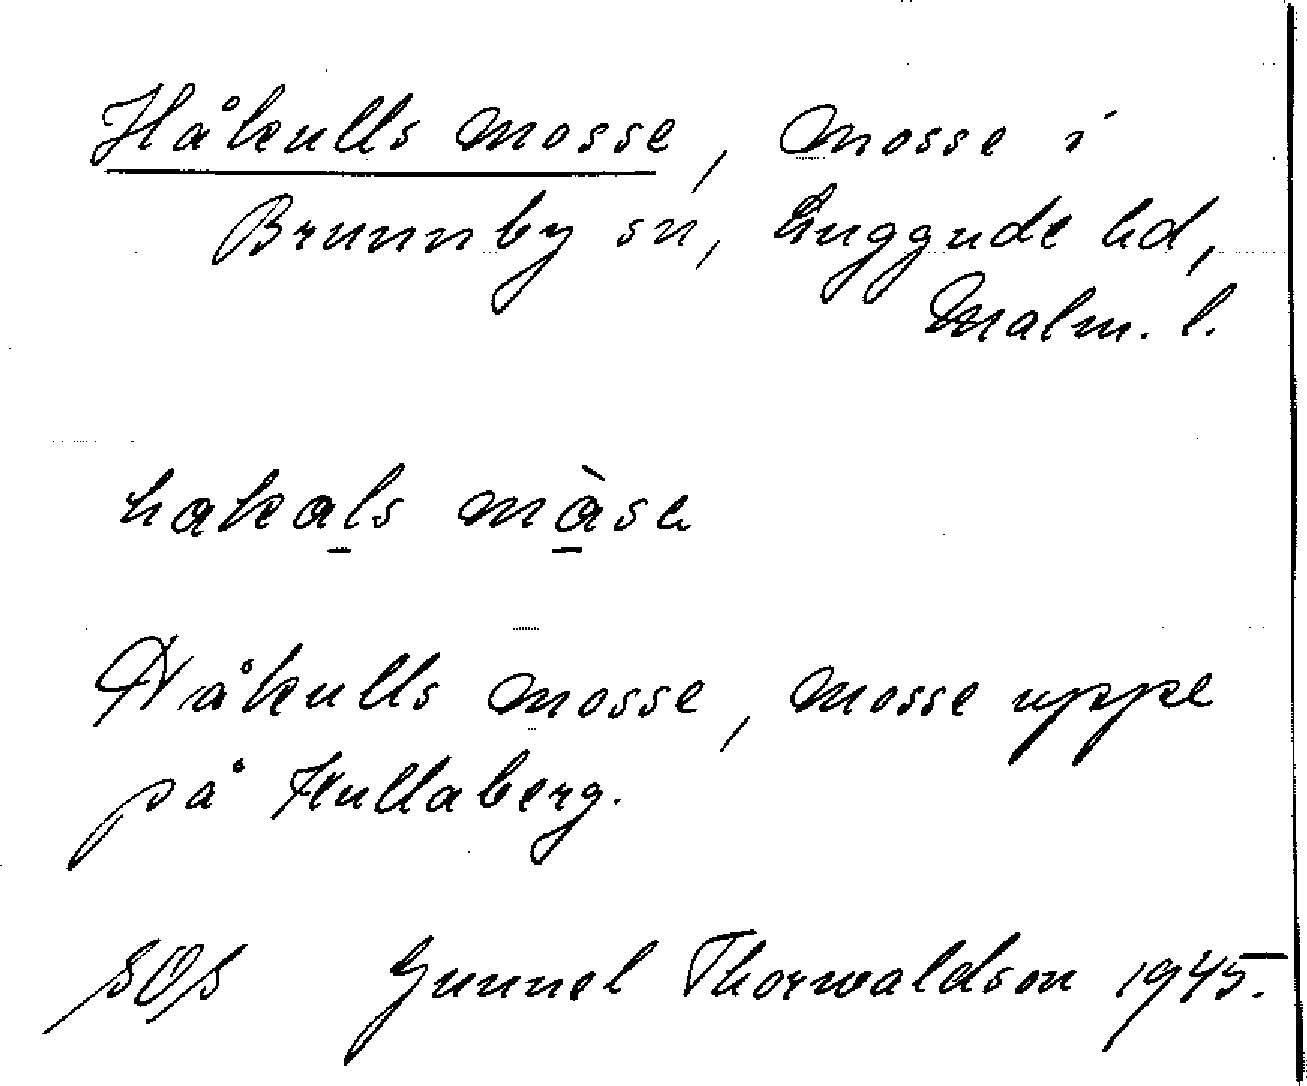 Håkulls mosse, mosse i
Brunnby sn, Luggude hd,
Malm. l.
hakals màsa
Håkulls mosse, mosse uppe
på Kullaberg.
SOS Gunnel Thorwaldson 1945.